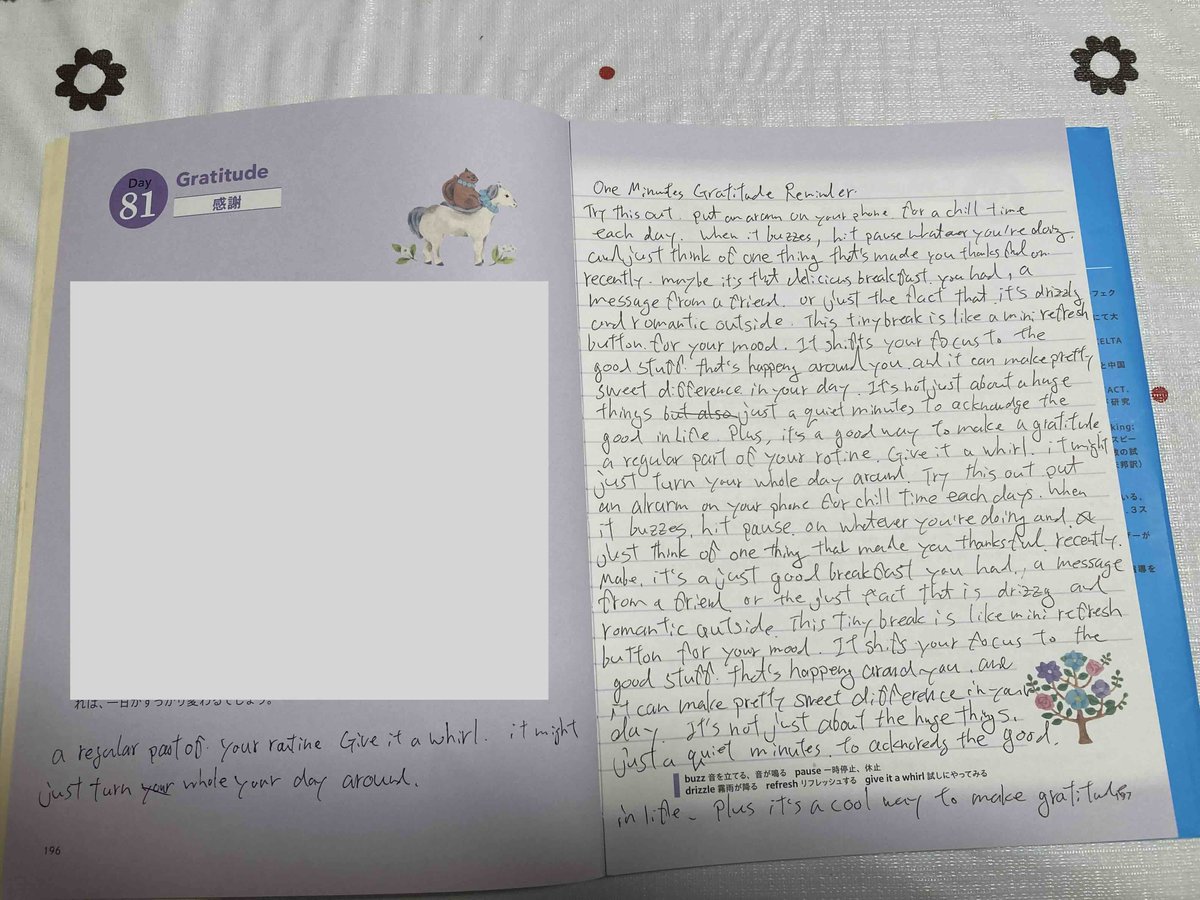 Day
81
Gratitude
感謝
れば、一日がすっかり変わるでしょう。
a regular part of your ratine Give it a whirl. it might
just turn your whole your day around.
196
One Minutes Gratitude Reminder.
Try this out. put an ararm on your phone for a chill time
each day. When it buzzes, hit pause whatever you're doing.
and just think of one thing that's made you thanksful on
recently. maybe it's that delicious breakfast you had, a
message from a friend. or just the fact that it's drizzly
and romantic outside. This tiny break is like a mini refresh
button for your mood. It shifts your focus to the
good stuff that's happeng around you and it can make pretty
sweet difference in your day. It's not just about a huge
things but also just a quiet minutes to acknowdge the
good in life. Plus, it's a good way to make a gratitude
a regular part of your rotine. Give it a whirl. it might
just turn your whole day around. Try this out put
an alrarm on your phone for chill time each days. When
it buzzes, hit pause on whatever you're doing and
just think of one thing that made you thanksful recently.
Mabe, it's a just good breakfast you had, a message
from a friend or the just fact that is drizzy and
romantic outside. This tiny break is like mini refresh
button for your mood. It shifs your focus to the
good stuff that's happeng arand you. and
it can make pretty sweet difference in your
day. It's not just about the huge things.
just a quiet minutes to acknoreds the good.
buzz 音を立てる、音が鳴る pause 一時停止、休止
drizzle 霧雨が降る refresh リフレッシュする give it a whirl 試しにやってみる
in life. Plus it's a cool way to make gratitude
197
フェク
にて大
ELTA
と中国
ACT.
研究
king:
スピー
の試
訳)
いる、
.3ス
ーが
導を